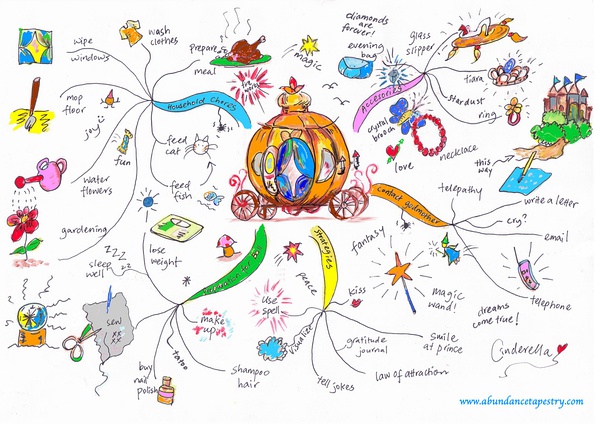 wash
clothes
wipe
windows
prepare
meal
mop
floor
joy
Household Chores
fun
feed
cat
water
flowers
feed
fish
gardening
magic
diamonds
are
forever!
evening
bag
glass
slipper
tiara
stardust
ring
Accessories
crystal
brooch
necklace
love
this
way
Contact godmother
telepathy
write a letter
cry?
email
telephone
magic
wand!
fantasy
dreams
come true!
Cinderella
Strategies
peace
kiss
use
spell
visualize
gratitude
journal
smile
at prince
law of attraction
tell jokes
lose
weight
zzz
zz
sleep
well
make
up
sew
xx
xx
tattoo
buy
nail
polish
shampoo
hair
www.abundancetapestry.com